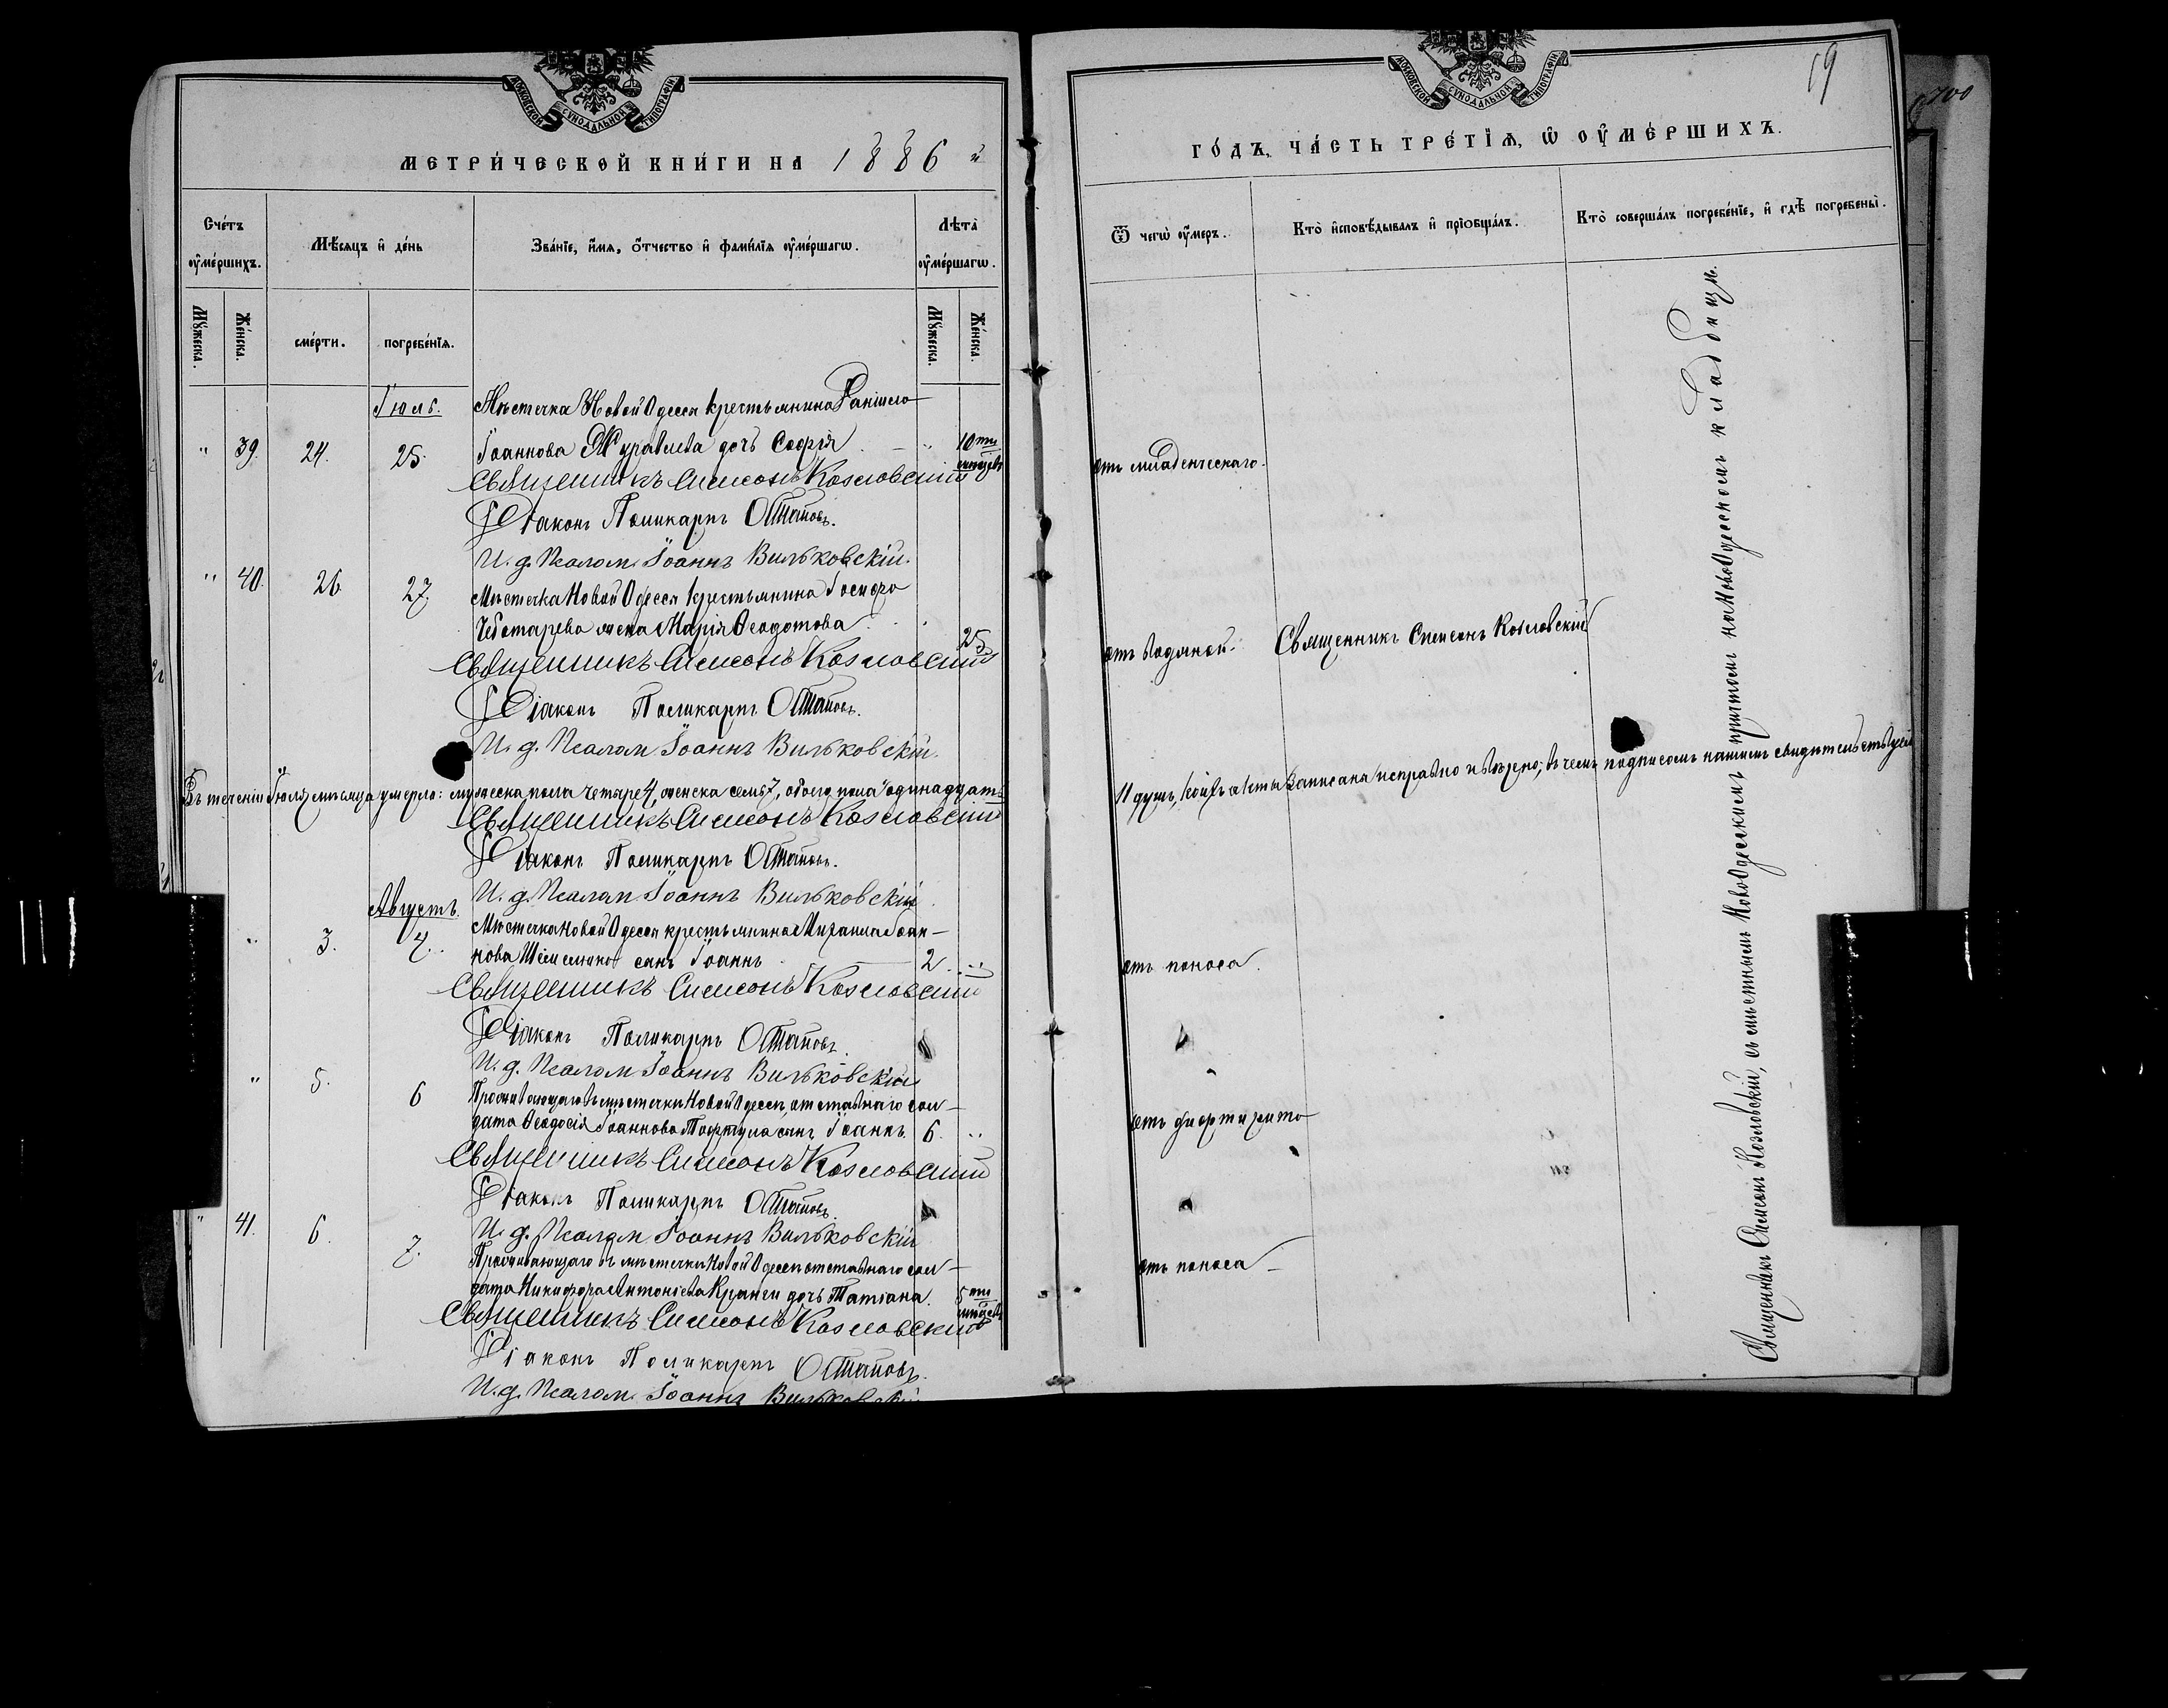 МОСКОВСКОЙ СѴНОДАЛЬНОЙ ТИПОГРАФІИ
МЕТРИ́ЧЕСКОЙ КНИ́ГИ НА 1886 й
Сче́тъ ᲂу҆ме́ршихъ.
Мѣ́сяцъ и҆ де́нь
Зва́нїе, и҆́мя, ѻ҆́тчество и҆ фами́лїя ᲂу҆ме́ршагѡ.
Лѣ́та ᲂу҆ме́ршагѡ.
Мꙋ́жеска.
Же́нска.
сме́рти.
погребе́нїя.
Мꙋ́жеска.
Же́нска.
Іюль.
Мѣстечка Новой Одессы крестьянина Даніила
" 39. 24. 25. Іоаннова Журавлева дочь Софія " 10ти мѣсяцевъ
Священникъ Симеонъ Козловскій
Діаконъ Поликарпъ Остаповъ.
И. д. Псалом. Іоаннъ Вильковскій.
" 40. 26. 27. Мѣстечка Новой Одессы крестьянина Іосифа
Чеботарева жена Марія Ѳеодотова 25
Священникъ Симеонъ Козловскій
Діаконъ Поликарпъ Остаповъ.
И. д. Псалом. Іоаннъ Вильковскій.
Въ теченіи Іюля мѣсяца умерло: мужеска пола четыре 4, женска семь 7, обоего пола одинадцать
Священникъ Симеонъ Козловскій
Діаконъ Поликарпъ Остаповъ.
И. д. Псалом. Іоаннъ Вильковскій
Августъ.
" 3. 4. Мѣстечка Новой Одессы крестьянина Михаила Іоан-
нова сынъ Іоаннъ 2 "
Священникъ Симеонъ Козловскій
Діаконъ Поликарпъ Остаповъ.
И. д. Псалом. Іоаннъ Вильковскій
" 5. 6 Проживающаго въ мѣстечкѣ Новой Одессѣ, отставнаго сол-
дата Ѳеодосія Іоаннова сынъ Іоаннъ. 6. "
Священникъ Симеонъ Козловскій
Діаконъ Поликарпъ Остаповъ.
И. д. Псалом. Іоаннъ Вильковскій
" 41. 6. 7. Проживающаго въ мѣстечкѣ Новой Одессѣ отставнаго сол-
дата Никифора Антоніева дочь Татіана. 5ти мѣсяцевъ
Священникъ Симеонъ Козловскій
Діаконъ Поликарпъ Остаповъ.
И. д. Псалом. Іоаннъ Вильковскій
МОСКОВСКОЙ СѴНОДАЛЬНОЙ ТИПОГРАФІИ
59
100
ГО́ДЪ, ЧА́СТЬ ТРЕ́ТЇЯ, Ѡ҆ ОУ҆МЕ́РШИХЪ.
Ѿ чегѡ̀ ᲂу҆́меръ.
Кто̀ и҆сповѣ́дывалъ и҆ прїѡбща́лъ.
Кто̀ соверша́лъ погребе́нїе, и҆ гдѣ̀ погребены̀.
отъ младенческаго.
отъ водяной. Священникъ Симеонъ Козловскій
11 душъ, коихъ акты записаны исправно и вѣрно; въ чемъ подписомъ нашимъ свидѣтельствуемъ
отъ поноса.
отъ дифтирита
отъ поноса
Священникъ Симеонъ Козловскій, съ мѣстнымъ Новоодесскимъ причтомъ на Новоодесскомъ кладбищѣ.